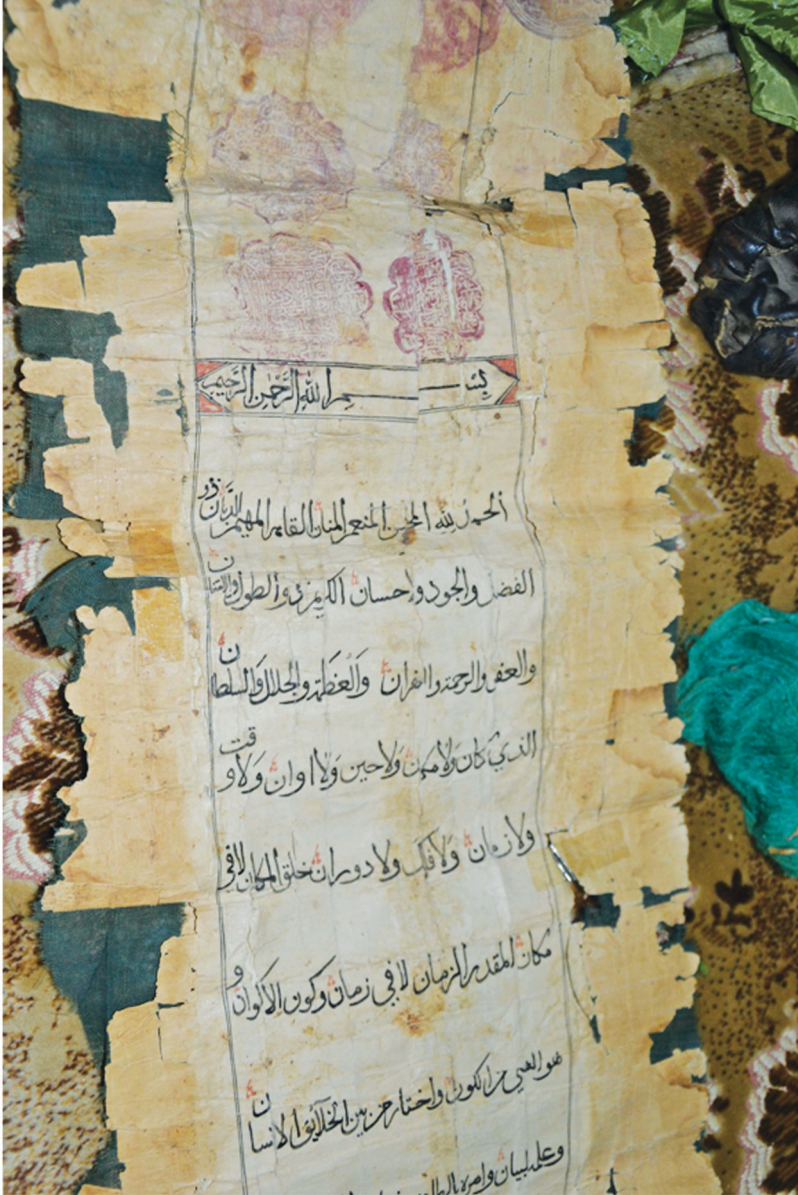 بسم الله الرحمن الرحيم
الحمد لله المحسن المنعم المنان القاهر المهيمن الديان ذو
الفضل والجود واحسان الكريم ذو الطول والامتنان
والعفو والرحمة والغفران وَالْعَظَمَة والجلال وَالسلطان
الذي كان وَلا مكان وَلا حين وَلا اوان وَلا وقت
ولا زمان وَلا فلك ولا دوران خلق المكان لا في
مكان المقدر الزمان لا في زمان وكون الاكوان و
هو من الكون واختار من بين الخلايق الانسان
وعلمه لبيان وامره